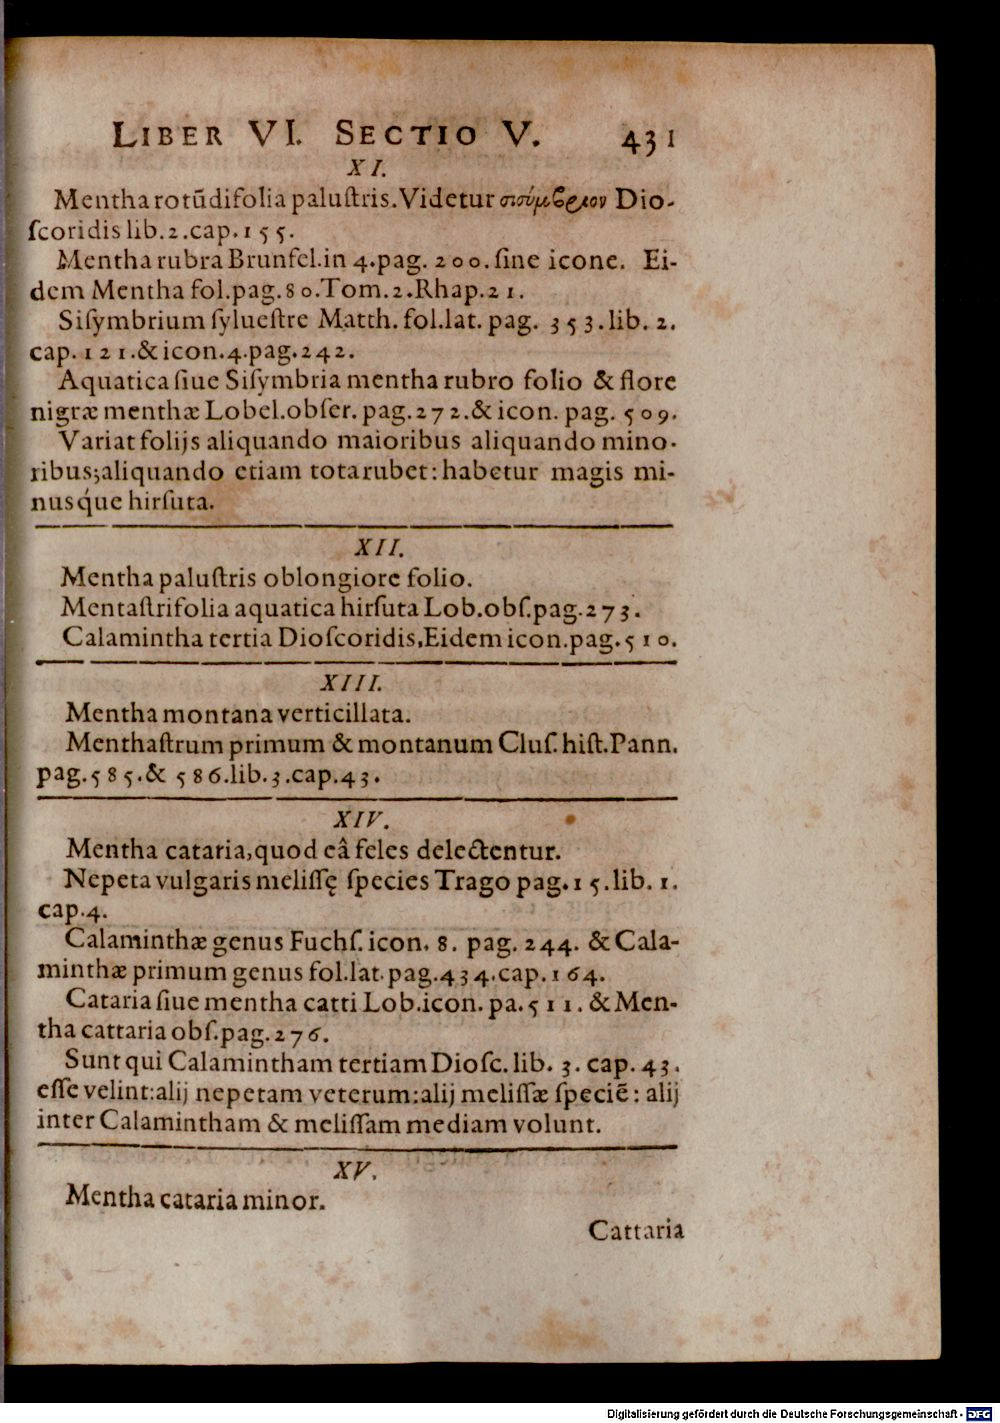 LIBER VI. SECTIO V. 431
XI.
Mentha rotũdifolia paluſtris. Videtur σισύμβριον Dio-
ſcoridis lib. 2. cap. 155.
Mentha rubra Brunfel. in 4. pag. 200. ſine icone. Ei-
dem Mentha fol. pag. 80. Tom. 2. Rhap. 21.
Siſymbrium ſylueſtre Matth. fol. lat. pag. 353. lib. 2.
cap. 121. & icon. 4. pag. 242.
Aquatica ſiue Siſymbria mentha rubro folio & flore
nigræ menthæ Lobel. obſer. pag. 272. & icon. pag. 509.
Variat folijs aliquando maioribus aliquando mino-
ribus; aliquando etiam tota rubet: habetur magis mi-
nusq́ue hirſuta.
XII.
Mentha paluſtris oblongiore folio.
Mentaſtrifolia aquatica hirſuta Lob. obſ. pag. 273.
Calamintha tertia Dioſcoridis, Eidem icon. pag. 510.
XIII.
Mentha montana verticillata.
Menthaſtrum primum & montanum Cluſ. hiſt. Pann.
pag. 585. & 586. lib. 3. cap. 43.
XIV.
Mentha cataria, quod eâ feles delectentur.
Nepeta vulgaris meliſſę ſpecies Trago pag. 15. lib. 1.
cap. 4.
Calaminthæ genus Fuchſ. icon. 8. pag. 244. & Cala-
minthæ primum genus fol. lat. pag. 434. cap. 164.
Cataria ſiue mentha catti Lob. icon. pa. 511. & Men-
tha cattaria obſ. pag. 276.
Sunt qui Calamintham tertiam Dioſc. lib. 3. cap. 43.
eſſe velint: alij nepetam veterum: alij meliſſæ ſpeciẽ: alij
inter Calamintham & meliſſam mediam volunt.
XV.
Mentha cataria minor.
Cattaria
Digitalisierung gefördert durch die Deutsche Forschungsgemeinschaft - DFG